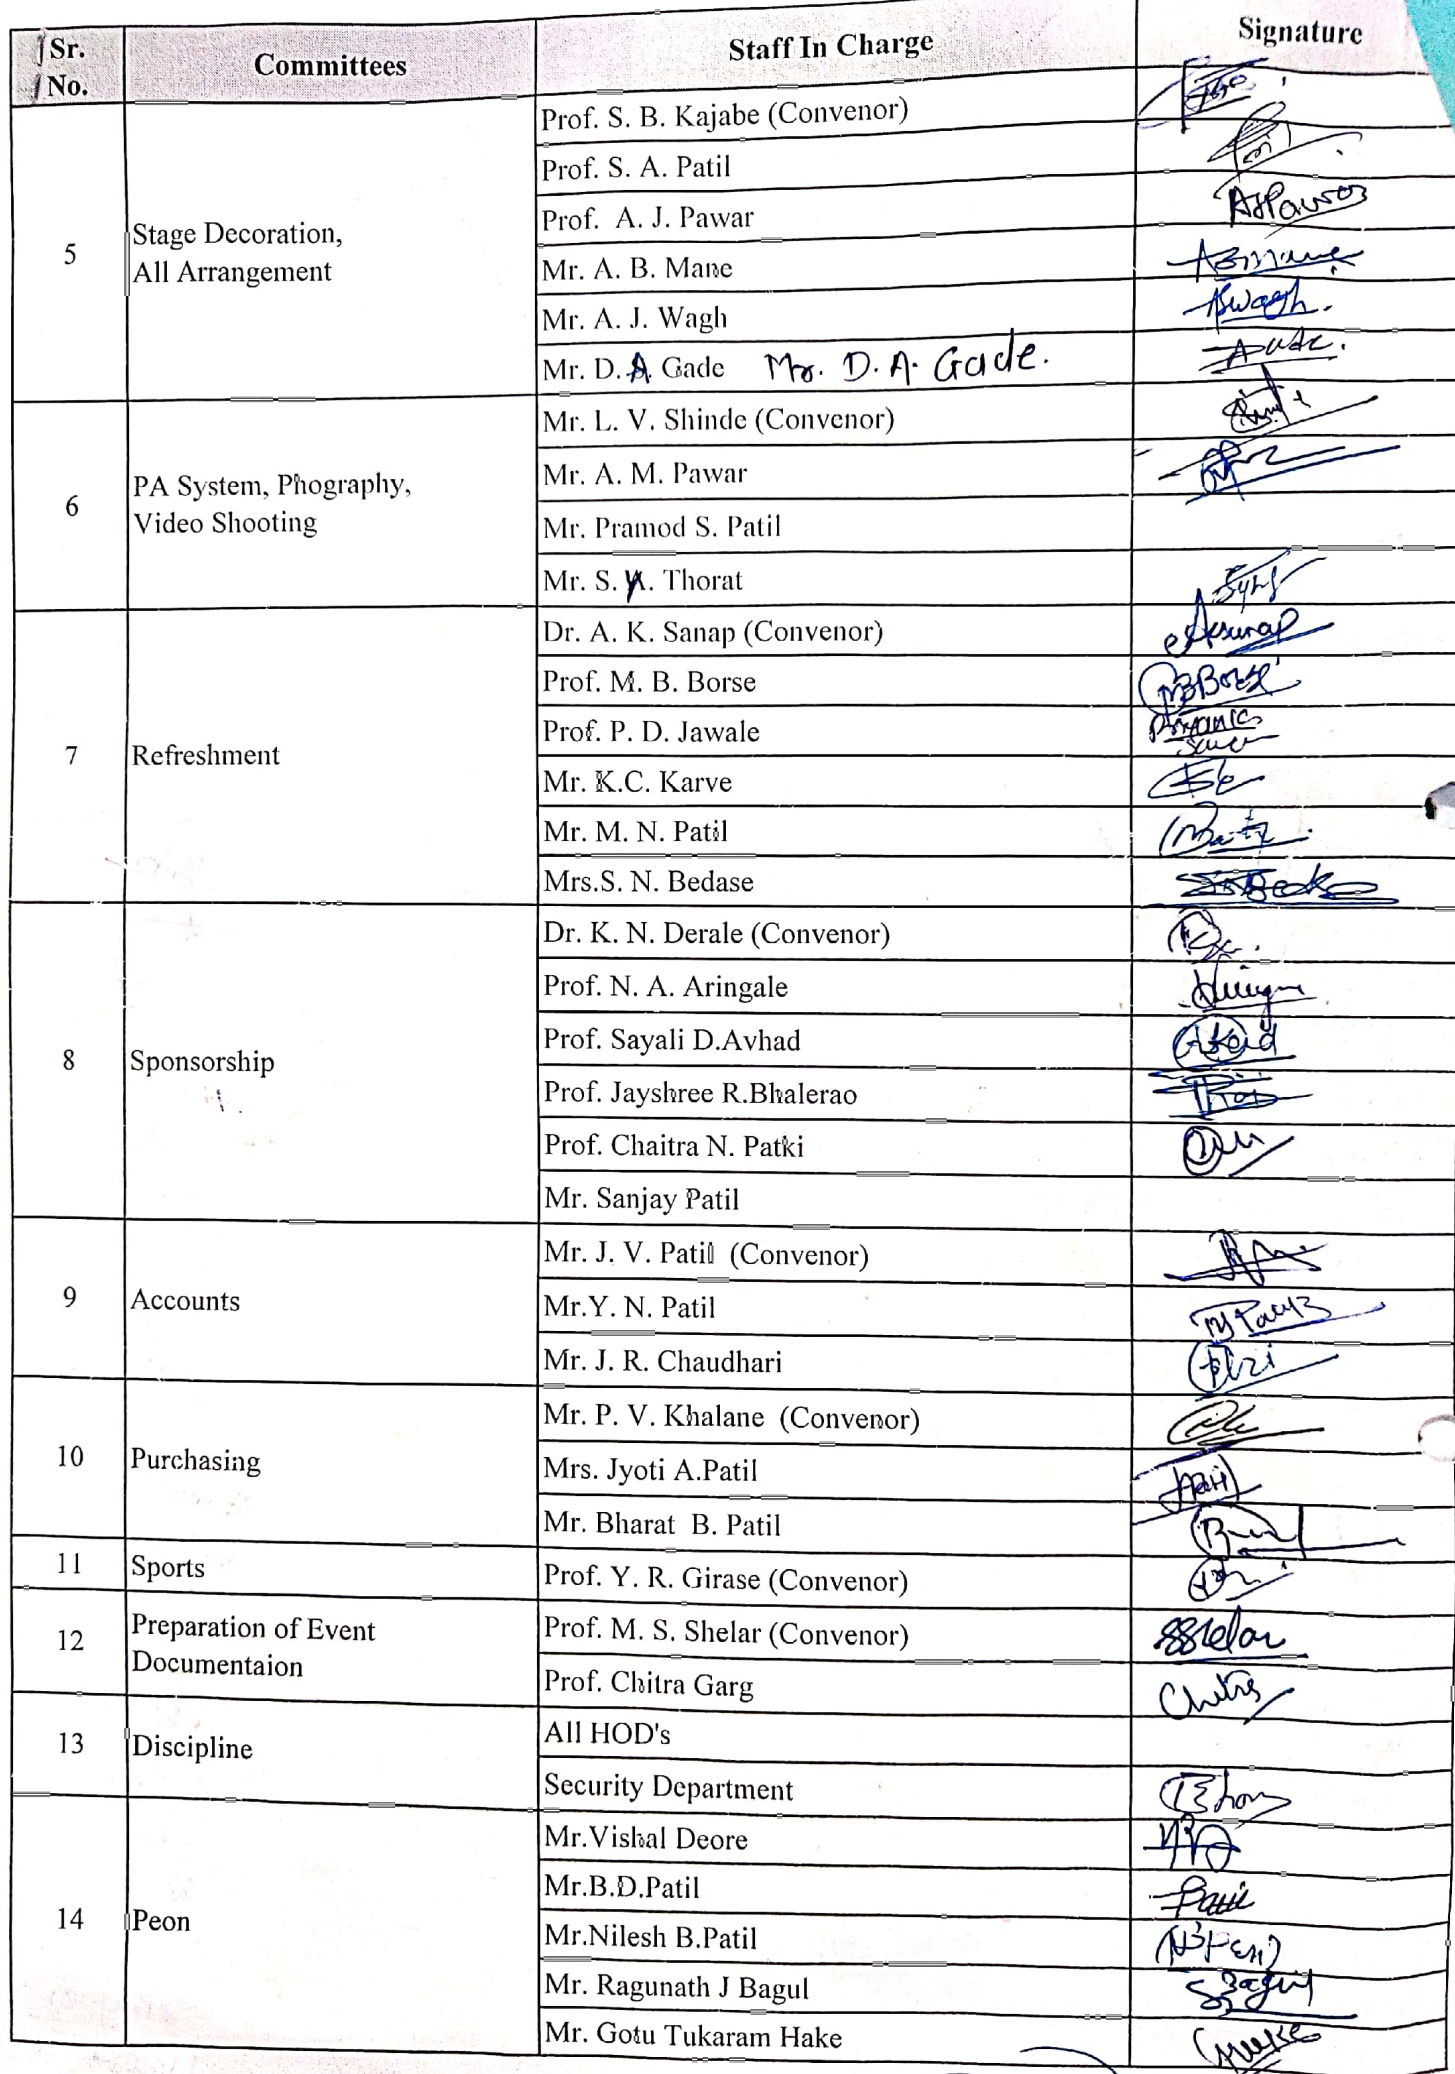 Sr. No. Committees Staff In Charge Signature
5 Stage Decoration, All Arrangement
Prof. S. B. Kajabe (Convenor)
Prof. S. A. Patil
Prof. A. J. Pawar
Mr. A. B. Mane
Mr. A. J. Wagh
Mr. D. A. Gade Mr. D. A. Gade.
6 PA System, Phography, Video Shooting
Mr. L. V. Shinde (Convenor)
Mr. A. M. Pawar
Mr. Pramod S. Patil
Mr. S. Y. Thorat
7 Refreshment
Dr. A. K. Sanap (Convenor)
Prof. M. B. Borse
Prof. P. D. Jawale
Mr. K.C. Karve
Mr. M. N. Patil
Mrs.S. N. Bedase
8 Sponsorship
Dr. K. N. Derale (Convenor)
Prof. N. A. Aringale
Prof. Sayali D.Avhad
Prof. Jayshree R.Bhalerao
Prof. Chaitra N. Patki
Mr. Sanjay Patil
9 Accounts
Mr. J. V. Patil (Convenor)
Mr.Y. N. Patil
Mr. J. R. Chaudhari
10 Purchasing
Mr. P. V. Khalane (Convenor)
Mrs. Jyoti A.Patil
Mr. Bharat B. Patil
11 Sports
Prof. Y. R. Girase (Convenor)
12 Preparation of Event Documentaion
Prof. M. S. Shelar (Convenor)
Prof. Chitra Garg
13 Discipline
All HOD's
Security Department
14 Peon
Mr.Vishal Deore
Mr.B.D.Patil
Mr.Nilesh B.Patil
Mr. Ragunath J Bagul
Mr. Gotu Tukaram Hake